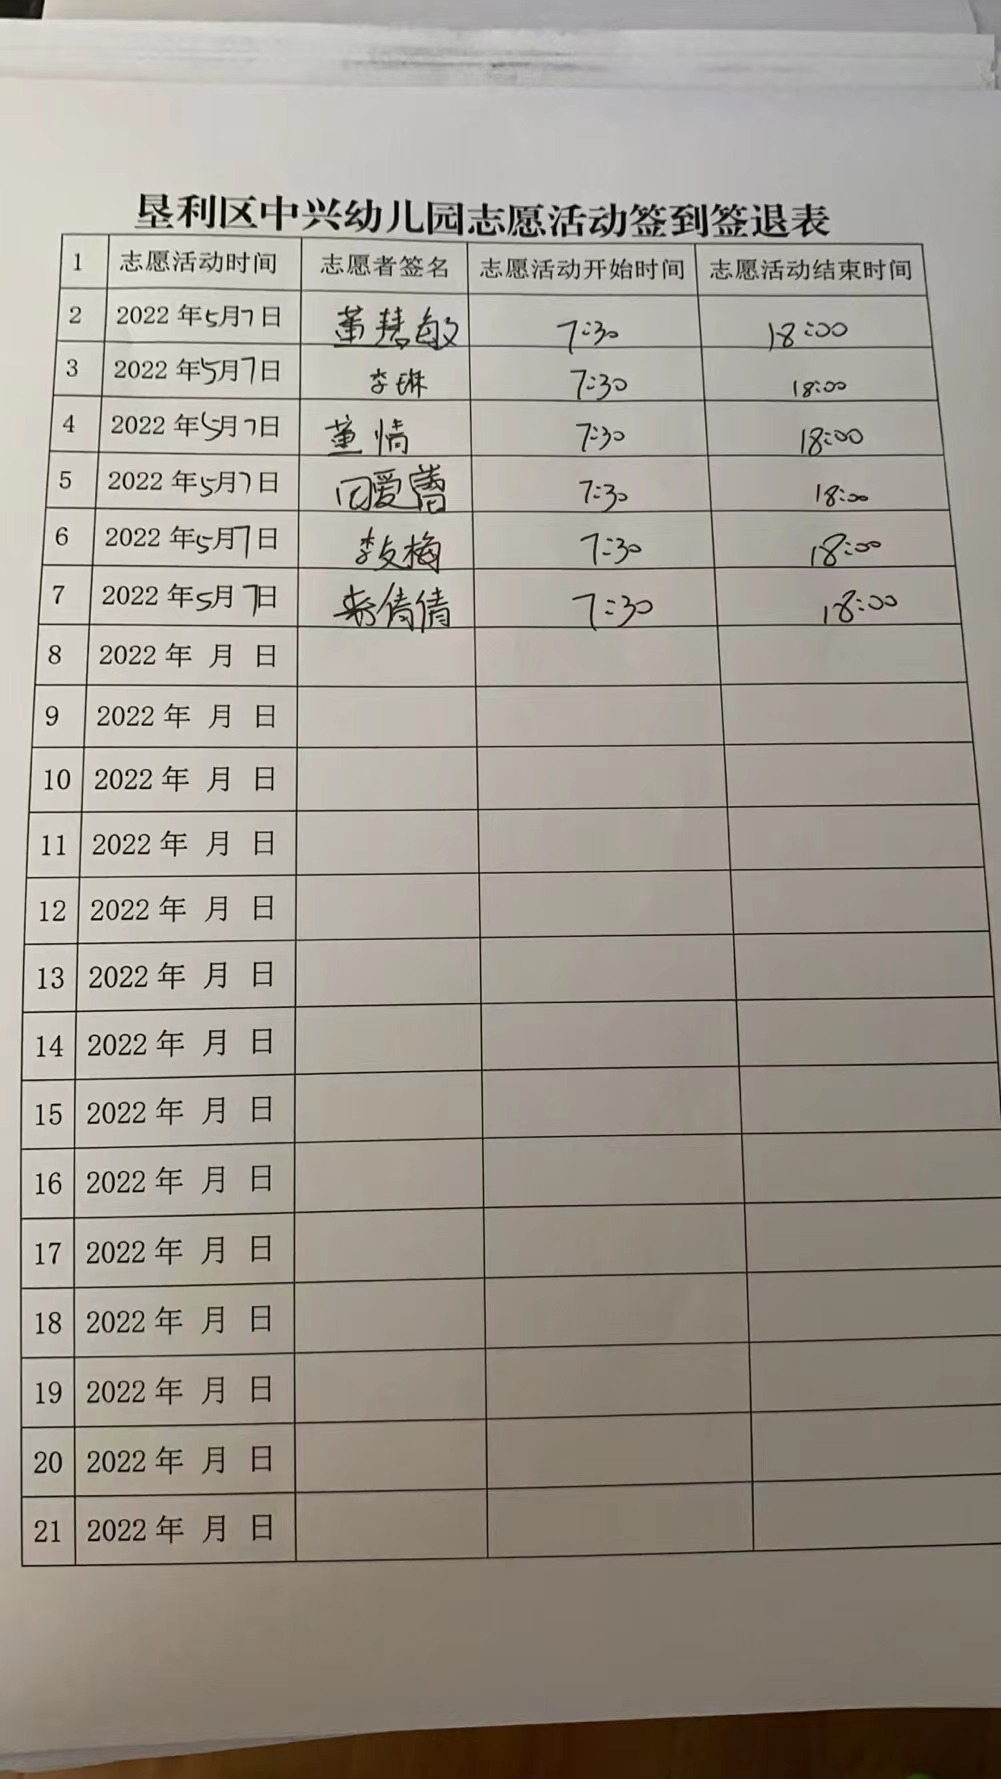 垦利区中兴幼儿园志愿活动签到签退表
1 志愿活动时间 志愿者签名 志愿活动开始时间 志愿活动结束时间
2 2022年5月7日 董慧敏 7:30 18:00
3 2022年5月7日 李琳 7:30 18:00
4 2022年5月7日 董情 7:30 18:00
5 2022年5月7日 爱蕾 7:30 18:00
6 2022年5月7日 李友梅 7:30 18:00
7 2022年5月7日 倩倩 7:30 18:00
8 2022年 月 日
9 2022年 月 日
10 2022年 月 日
11 2022年 月 日
12 2022年 月 日
13 2022年 月 日
14 2022年 月 日
15 2022年 月 日
16 2022年 月 日
17 2022年 月 日
18 2022年 月 日
19 2022年 月 日
20 2022年 月 日
21 2022年 月 日